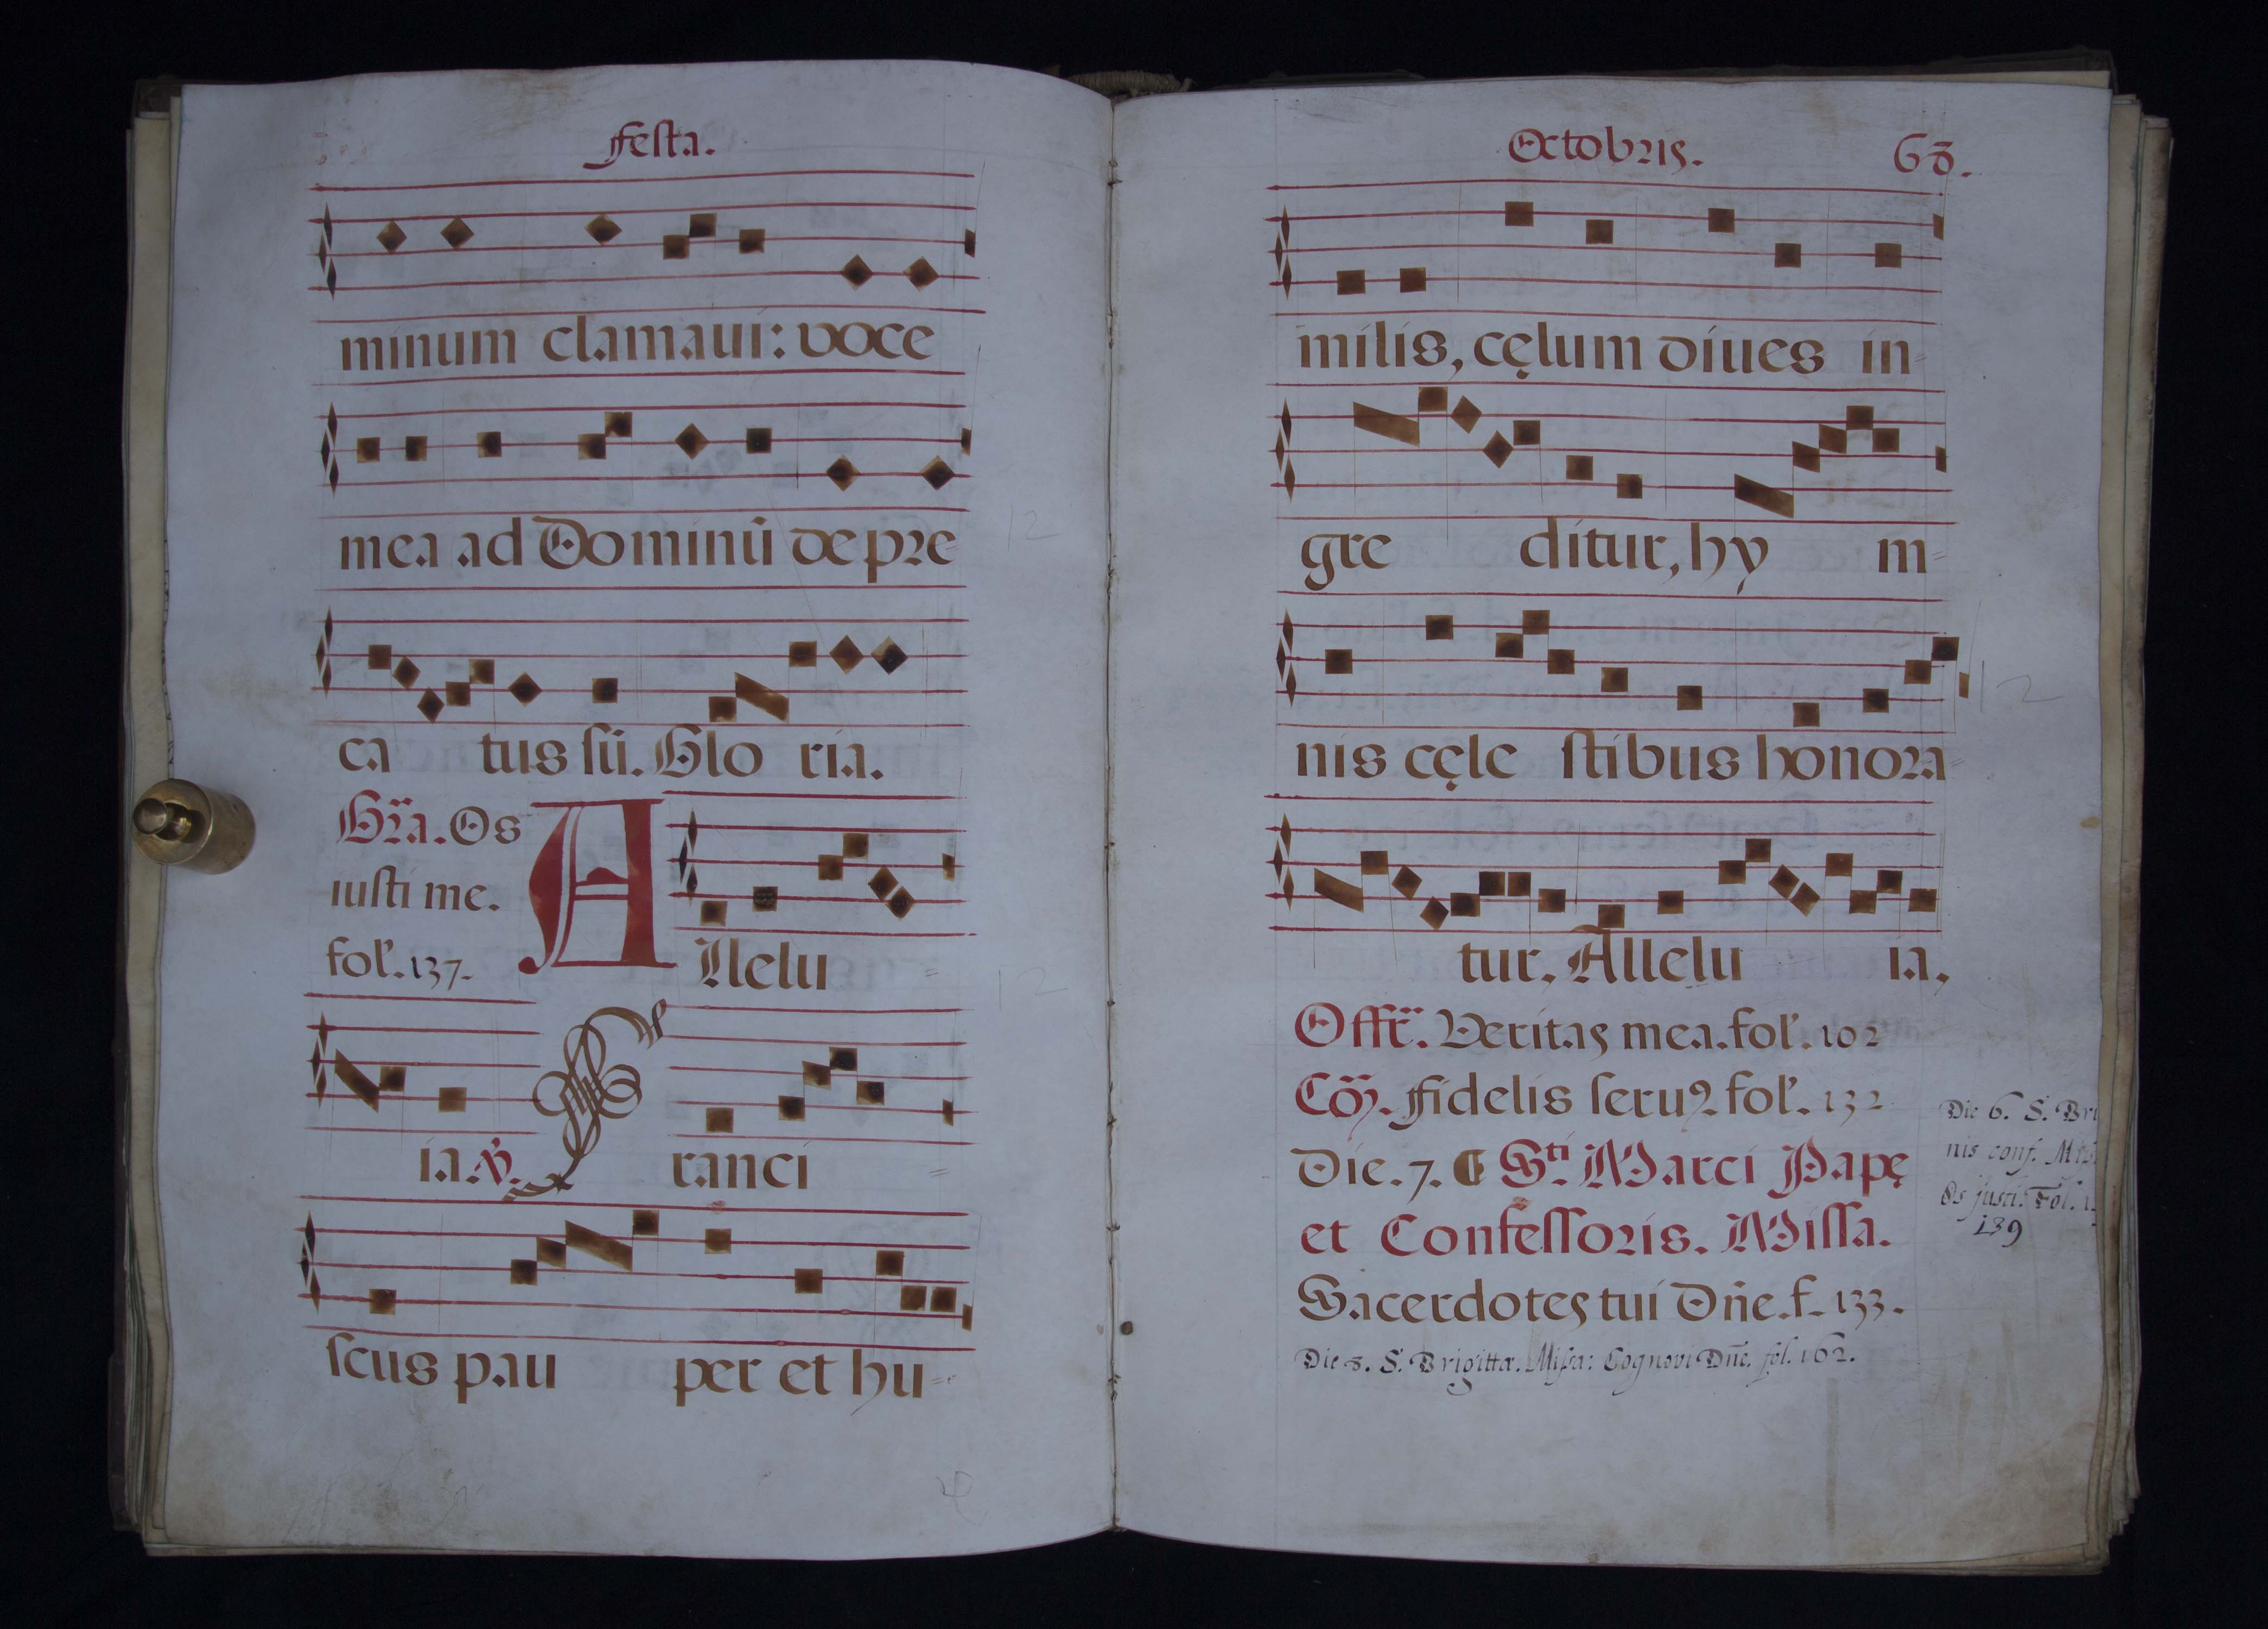 Festa.
minum clamaui: voce
mea ad Dominū depre
ca tus sū. Glo ria.
Gr̃a. Os
iusti me.
fol. 137.
A llelu =
ia. ℣. F ranci =
scus pau per et hu=
Octobris. 68.
milis, cęlum diues in=
gre ditur, hy m=
nis cęle stibus honora
tur, Allelu ia,
Offr̃. Veritas mea. fol. 102
Cõ. Fidelis seruꝰ fol. 132
Die. 7. Sti Marci Papę
et Confessoris. Missa.
Sacerdotes tui Dñe. f. 133.
Die 8. S. Brigittæ. Missa: Cognovi Dñe. fol. 162.
Die 6. S. Bru
nis conf. Mis
Os justi. Fol.
139
12
12
12